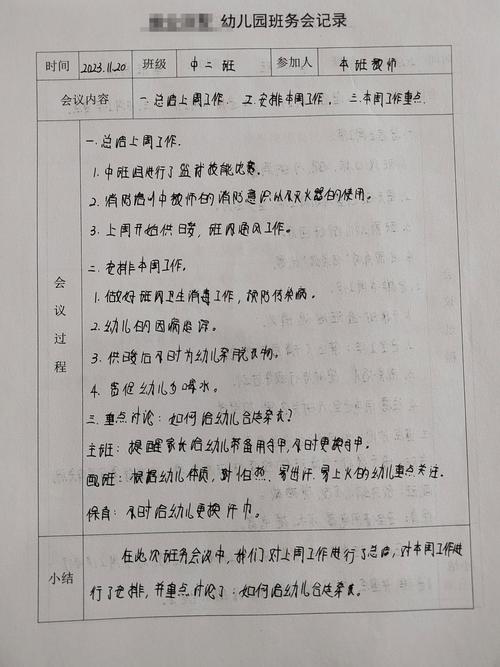 幼儿园班务会记录
时间 2023.11.20 班级 中二班 参加人 本班教师
会议内容 一.总结上周工作. 二.安排本周工作. 三.本周工作重点.
会议过程
一.总结上周工作.
1.中班组进行了篮球技能比赛.
2.消防培训中教师的消防意识以及灭火器的使用。
3.上周开始供暖,班内通风工作.
二.安排本周工作.
1.做好班内卫生消毒工作,预防传染病.
2.幼儿的因病追踪.
3.供暖后及时为幼儿穿脱衣物.
4.督促幼儿多喝水.
三.重点讨论:如何给幼儿合适穿衣?
主班:提醒家长给幼儿带备用马甲,及时更换马甲.
配班:根据幼儿体质,对怕热.易出汗.易上火的幼儿重点关注.
保育:及时给幼儿更换汗巾.
小结
在此次班务会议中,我们对上周工作进行了总结,对本周工作进
行了安排,并重点讨论了:如何给幼儿合适穿衣.